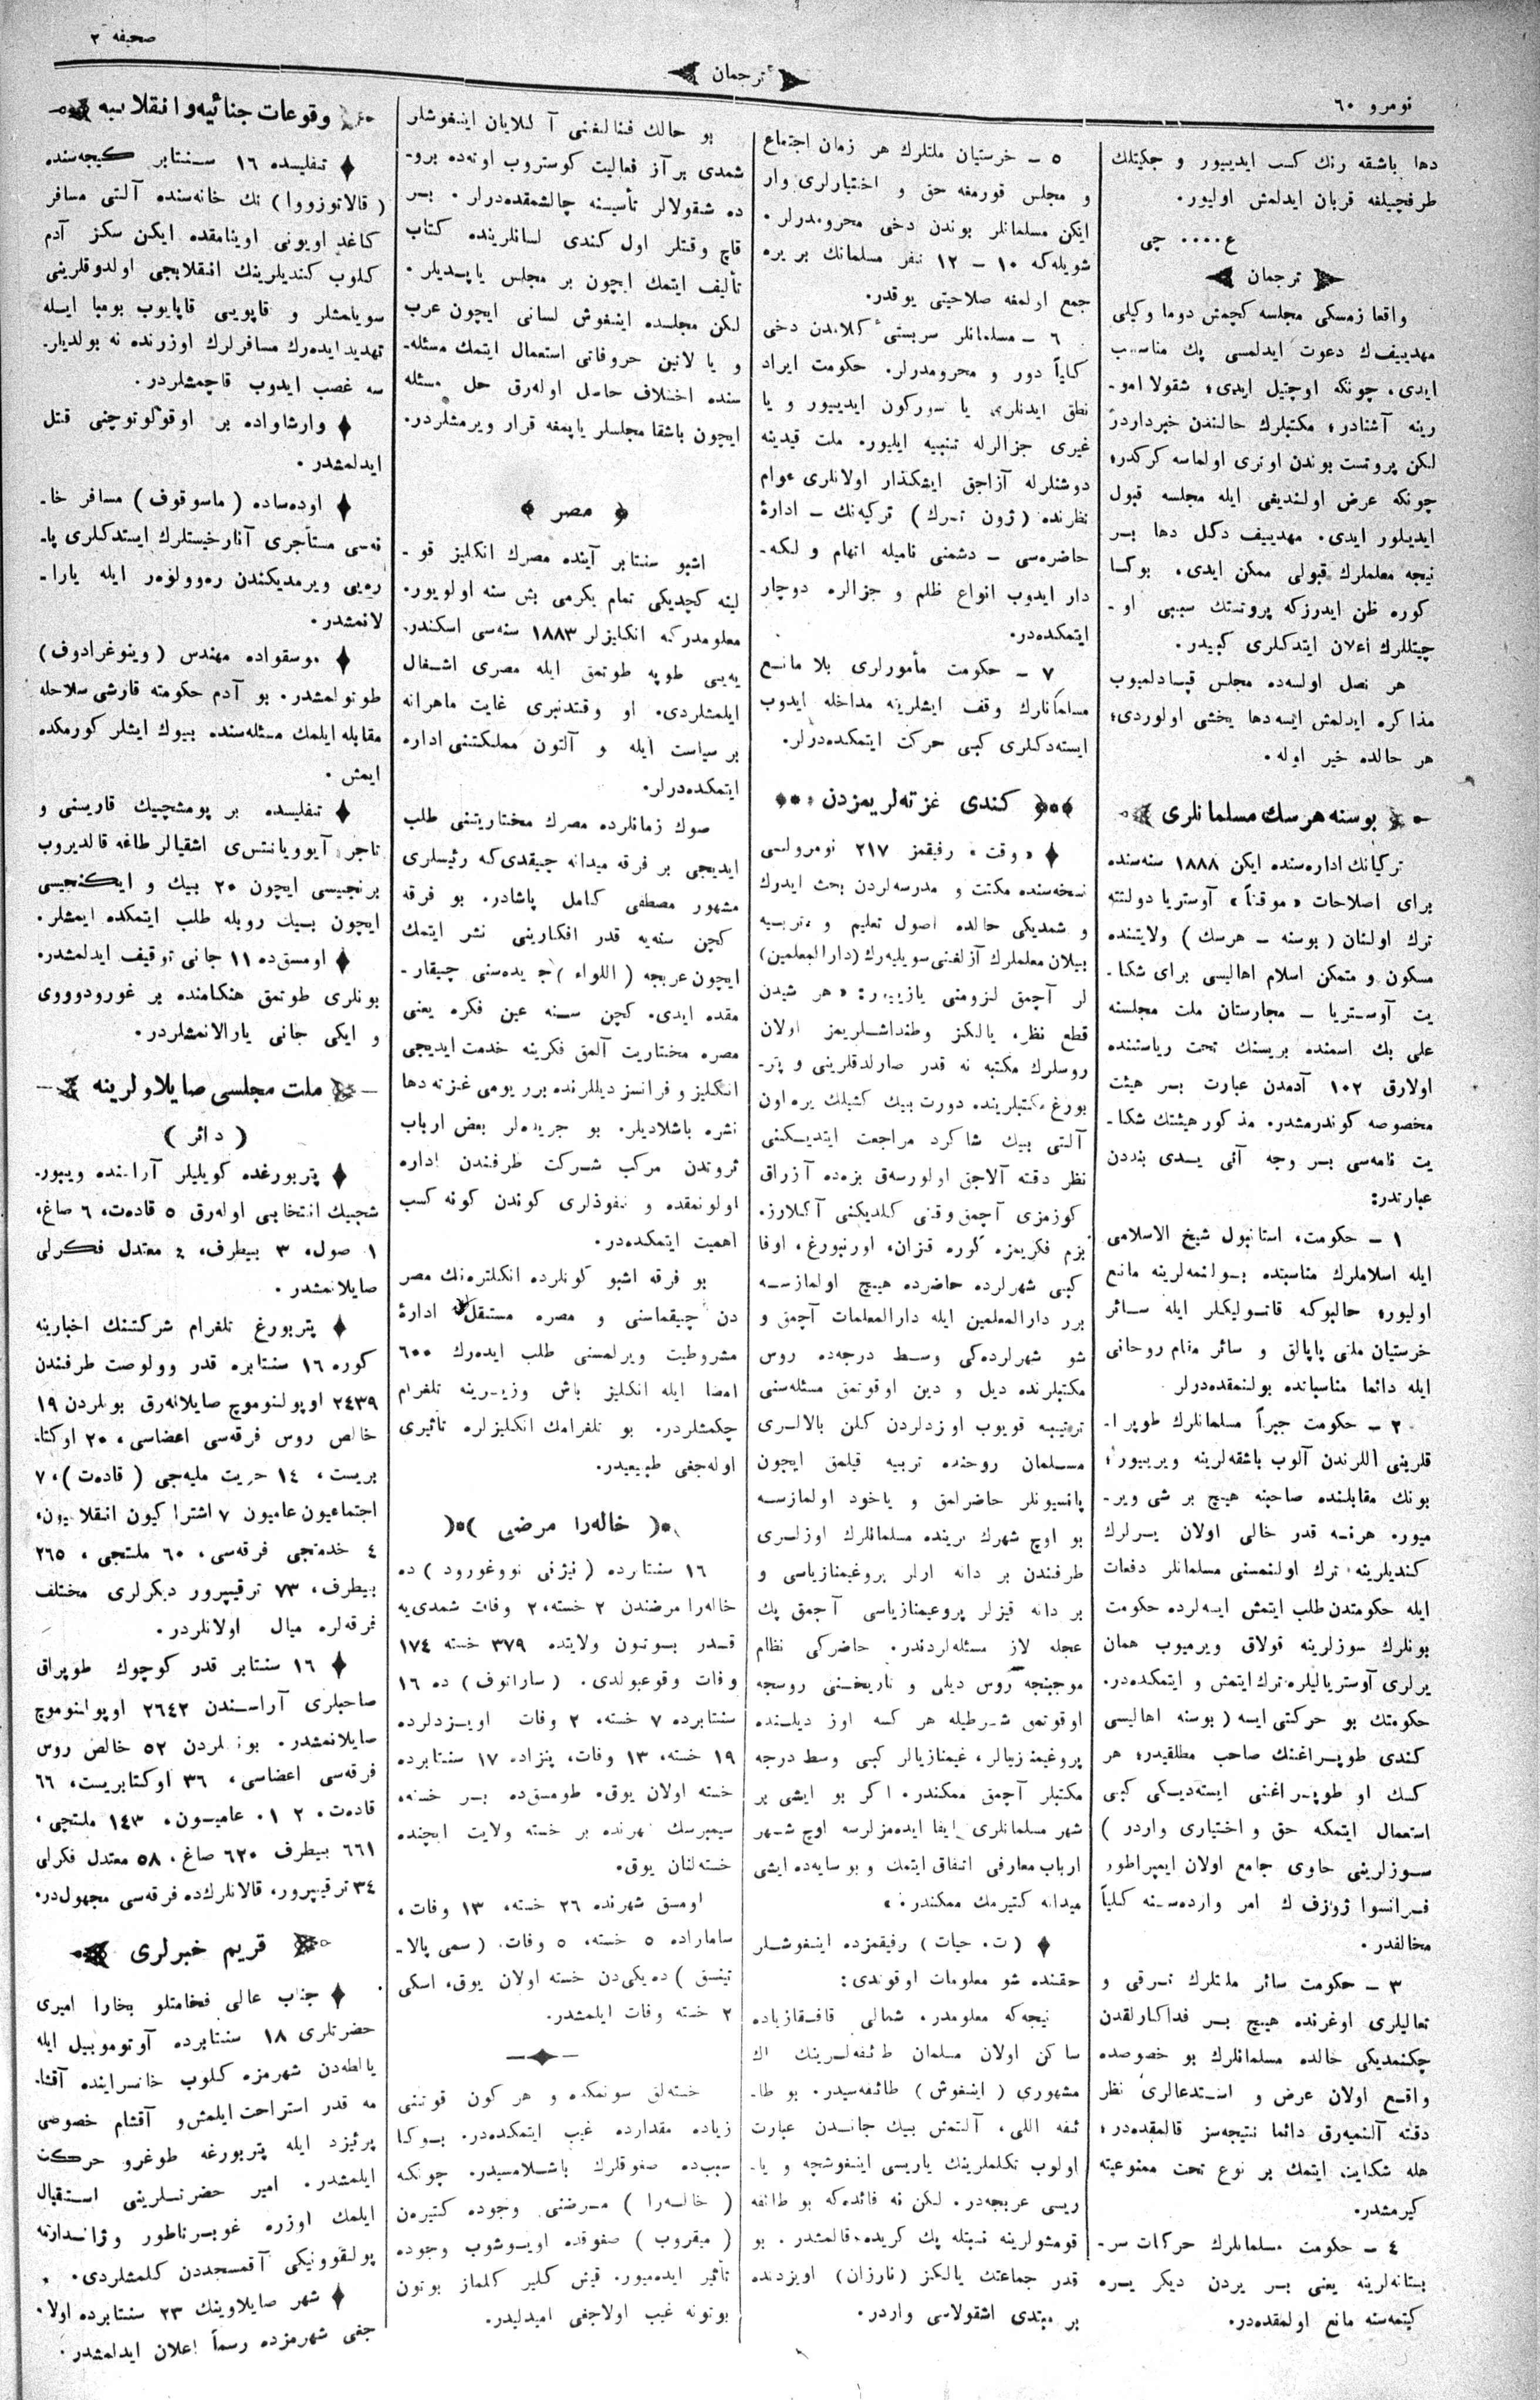 نومرو ٦٠
ترجمان
صحيفه ٢
دها باشقه رنك كسب ايدييور و جكيتلك
طرفچيلغه قربان ايدلمش اوليور.
ع.... چى
ترجمان
واقعا زمسكى مجلسه كچمش دوما وكيلى
مهدييفك دعوت ايدلمسى پك مناسب
ايدى، چونكه اوچيتل ايدى؛ شقولا امو-
رينه آشنادر؛ مكتبلرك حالندن خبرداردر
لكن پروتست بوندن اوترى اولماسه كركدر؛
چونكه عرض اولنديغى ايله مجلسه قبول
ايديلور ايدى. مهدييف دكل دها بر
نيچه معلملرك قبولى ممكن ايدى. بوكا
كوره ظن ايدرزكه پروتستك سببى او-
چيتللرك اعلان ايتدكلرى كبيدر.
هر نصل اولسه‌ده مجلس قپادلميوب
مذاكره ايدلمش ايسه‌دها يخشى اولوردى؛
هر حالده خير اوله.
بوسنه هرسك مسلمانلرى
تركيانك اداره‌سنده ايكن ١٨٨٨ سنه‌سنده
براى اصلاحات «موقتاً» آوستريا دولتنه
ترك اولنان (بوسنه – هرسك) ولايتنده
مسكون و متمكن اسلام اهاليسى براى شكا-
يت آوستريا – مجارستان ملت مجلسنه
على بك اسمنده بريسنك تحت رياستنده
اولارق ١٠٢ آدمدن عبارت بر هيئت
مخصوصه كوندرمشدر. مذكور هيئتك شكا-
يت نامه‌سى بر وجه آتى يدى بنددن
عبارتدر:
١ – حكومت، استانبول شيخ الاسلامى
ايله اسلاملرك مناسبتده بولنمه‌لرينه مانع
اوليور؛ حالبوكه قاتوليكلر ايله سائر
خرستيان ملتى پاپالق و سائر مقام روحانى
ايله دائما مناسباتده بولنمقده‌درلر.
٢ – حكومت جبراً مسلمانلرك طوپرا-
قلرينى اللرندن آلوب باشقه‌لرينه ويرييور؛
بونك مقابلنده صاحبنه هيچ بر شى وير-
ميور. هرنه قدر خالى اولان يرلرك
كنديلرينه ترك اولنمسنى مسلمانلر دفعات
ايله حكومتدن طلب ايتمش ايسه‌لرده حكومت
بونلرك سوزلرينه قولاق ويرميوب همان
يرلرى آوستريالیلره ترك ايتمش و ايتمكده‌در.
حكومتك بو حركتى ايسه (بوسنه اهاليسى
كندى طوپراغنك صاحب مطلقيدر؛ هر
كسك او طوپراغنى ايسته‌ديكى كبى
استعمال ايتمكه حق و اختيارى واردر)
سوزلرينى حاوى جامع اولان ايمپراطور
فرانسوا ژوزفك امر وارده‌سنه كلياً
مخالفدر.
٣ – حكومت سائر ملتلرك ترقى و
تعاليلرى اوغرنده هيچ بر فداكارلقدن
چكنمديكى حالده مسلمانلرك بو خصوصده
واقع اولان عرض و استدعالرى نظر
دقته آلنميه‌رق دائما نتيجه‌سز قالمقده‌در؛
هله شكايت ايتمك بر نوع تحت ممنوعيته
كيرمشدر.
٤ – حكومت مسلمانلرك حركات سر-
بستانه‌لرينه يعنى بر يردن ديكر يره
كيتمه‌سنه مانع اولمقده‌در.
٥ – خرستيان ملتلرك هر زمان اجتماع
و مجلس قورمغه حق و اختيارلرى وار
ايكن مسلمانلر بوندن دخى محرومدرلر.
شويله‌كه ١٠ – ١٢ نفر مسلمانك بر يره
جمع اولمغه صلاحيتى يوقدر.
٦ – مسلمانلر سربستىء كلامدن دخى
كلياً دور و محرومدرلر. حكومت ايراد
نطق ايدنلرى يا سوركون ايدييور و يا
غيرى جزالرله تنبيه ايليور. ملت قيدينه
دوشنلرله آزاجق ايشكذار اولانلرى عوام
نظرنده (ژون ترك) تركيه‌نك – ادارهٔ
حاضره‌سى – دشمنى ناميله اتهام و لكه-
دار ايدوب انواع ظلم و جزالره دوچار
ايتمكده‌در.
٧ – حكومت مأمورلرى بلا مانع
مسلمانلرك وقف ايشلرينه مداخله ايدوب
ايسته‌دكلرى كبى حركت ايتمكده‌درلر.
كندى غزته‌لريمزدن
«وقت» رفيقمز ٢١٧ نومرولى
نسخه‌سنده مكتب و مدرسه‌لردن بحث ايدرك
و شمديكى حالده اصول تعليم و تربيه
بيلان معلملرك آزلغنى سويليه‌رك (دارالمعلمين)
لر آچمق لزومنى يازييور: «هر شيدن
قطع نظر، يالكز وطنداشلريمز اولان
روسلرك مكتبه نه قدر صارلدقلرينى و پتر-
بورغ مكتبلرينده دورت بيك كشيلك يره اون
آلتى بيك شاكرد مراجعت ايتديكنى
نظر دقته آلاجق اولورسه‌ق بزه‌ده آزراق
كوزمزى آچمق وقتى كلديكنى آكلارز.
بزم فكريمزه كوره قزان، اورنبورغ، اوفا
كبى شهرلرده حاضرده هيچ اولمازسه
برر دارالمعلمين ايله دارالمعلمات آچمق و
شو شهرلرده‌كى وسط درجه‌ده روس
مكتبلرنده ديل و دين اوقوتمق مسئله‌سنى
ترتيبه قويوب اوزدلردن كلن بالالرى
مسلمان روحنده تربيه قيلمق ايچون
پانسيونلر حاضرلمق و ياخود اولمازسه
بو اوچ شهرك برينده مسلمانلرك اوزلرى
طرفندن بر دانه ارلر پروغيمنازياسى و
بر دانه قيزلر پروغيمنازياسى آچمق پك
عجله لازم مسئله‌لردندر. حاضركى نظام
موجبنجه روس ديلى و تاريخنى روسجه
اوقوتمق شرطيله هر كسه اوز ديلنده
پروغيمنازيالر، غيمنازيالر كبى وسط درجه
مكتبلر آچمق ممكندر. اكر بو ايشى بر
شهر مسلمانلرى ايفا ايده‌مزلرسه اوچ شهر
ارباب معارفى اتفاق ايتمك و بو سايه‌ده ايشى
ميدانه كتيرمك ممكندر.»
(ت. حيات) رفيقمزده اينغوشلر
حقنده شو معلومات اوقوندى:
نيچه‌كه معلومدر، شمالى قافقازياده
ساكن اولان مسلمان طائفه‌لرينك اك
مشهورى (اينغوش) طائفه‌سيدر. بو طا-
ئفه اللى، آلتمش بيك جاندن عبارت
اولوب تكلملرينك ياريسى اينغوشچه و يا-
ريسى عربجه‌در. لكن نه فائده‌كه بو طائفه
قومشولرينه نسبتله پك كريده قالمشدر. بو
قدر جماعتك يالكز (نارزان) اويزدنده
بر مبتدى اشقولاسى واردر.
بو حالك فنالغنى آكلايان اينغوشلر
شمدى بر آز فعاليت كوستروب اوته‌ده برو-
ده شقولالر تأسيسنه چالشمقده‌درلر. بر
قاچ وقتلر اول كندى لسانلرينده كتاب
تأليف ايتمك ايچون بر مجلس ياپديلر.
لكن مجلسده اينغوش لسانى ايچون عرب
و يا لاتين حروفاتى استعمال ايتمك مسئله-
سنده اختلاف حاصل اوله‌رق حل مسئله
ايچون باشقا مجلسلر ياپمغه قرار ويرمشلردر.
مصر
اشبو سنتابر آينده مصرك انكليز قو-
لينه كچديكى تمام يكرمى بش سنه اولويور.
معلومدركه انكليزلر ١٨٨٣ سنه‌سى اسكندر-
يه‌يى طوپه طوتمق ايله مصرى اشغال
ايلمشلردى. او وقتدنبرى غايت ماهرانه
بر سياست ايله و آلتون مملكتنى اداره
ايتمكده‌درلر.
صوك زمانلرده مصرك مختاريتنى طلب
ايديجى بر فرقه ميدانه چيقدى‌كه رئيسلرى
مشهور مصطفى كامل پاشادر. بو فرقه
كچن سنه‌يه قدر افكارينى نشر ايتمك
ايچون عربجه (اللواء) جريده‌سنى چيقار-
مقده ايدى. كچن سنه عين فكره يعنى
مصره مختاريت آلمق فكرينه خدمت ايديجى
انكليز و فرانسز ديللرنده برر يومى غزته دها
نشره باشلاديلر. بو جريده‌لر بعض ارباب
ثروتدن مركب شركت طرفندن اداره
اولونمقده و نفوذلرى كوندن كونه كسب
اهميت ايتمكده‌در.
بو فرقه اشبو كونلرده انكلتره‌نك مصر
دن چيقماسنى و مصره مستقل ادارهٔ
مشروطيت ويرلمسنى طلب ايده‌رك ٦٠٠
امضا ايله انكليز باش وزيرينه تلغرام
چكمشلردر. بو تلغرامك انكليزلره تأثيرى
اوله‌جغى طبيعيدر.
خاله‌را مرضى
١٦ سنتابرده (نيژنى نووغورود) ده
خاله‌را مرضندن ٢ خسته، ٢ وفات شمدى‌يه
قدر بوتون ولايتده ٣٧٩ خسته ١٧٤
وفات وقوعبولدى. (ساراتوف) ده ١٦
سنتابرده ٧ خسته، ٢ وفات اويزدلرده
١٩ خسته، ١٣ وفات، پنزاده ١٧ سنتابرده
خسته اولان يوق. طومسق‌ده بر خسته،
سيمبرسك شهرنده بر خسته ولايت ايچنده
خسته‌لنان يوق.
اومسق شهرنده ٢٦ خسته، ١٣ وفات،
ساماراده ٥ خسته، ٥ وفات. (سمى پالا-
تينسق) ده يكى‌دن خسته اولان يوق، اسكى
٢ خسته وفات ايلمشدر.
خسته‌لق سونمكده و هر كون قوتنى
زياده مقدارده غيب ايتمكده‌در. بوكا
سبب‌ده صغوقلرك باشلامسيدر. چونكه
(خاله‌را) مرضنى وجوده كتيره‌ن
(ميقروب) صغوقده اويوشوب وجوده
تأثير ايده‌ميور. قيش كلير كلماز بوتون
بوتونه غيب اولاجغى اميدليدر.
وقوعات جنائيه و انقلابيه
تيفليسده ١٦ سنتابر كيجه‌سنده
(قالاتوزووا) نك خانه‌سنده آلتى مسافر
كاغد اويونى اوينامقده ايكن سكز آدم
كلوب كنديلرينك انقلابجى اولدوقلرينى
سويلمشلر و قاپويى قاپايوب بومبا ايله
تهديد ايده‌رك مسافرلرك اوزرنده نه بولديلر-
سه غصب ايدوب قاچمشلردر.
وارشاواده بر اوقولوتوچنى قتل
ايدلمشدر.
اوده‌ساده (ماسوقوف) مسافر خا-
نه‌سى مستأجرى آنارخيستلرك ايستدكلرى پا-
ره‌يى ويرمديكندن ره‌وولوه‌ر ايله يارا-
لانمشدر.
موسقواده مهندس (وينوغرادوف)
طوتولمشدر. بو آدم حكومته قارشى سلاحله
مقابله ايلمك مسئله‌سنده بيوك ايشلر كورمكده
ايمش.
تيفليسده بر پومشچيك قاريسنى و
تاجر آيوويانتس‌ى اشقيالر طاغه قالديروب
برنجيسى ايچون ٢٠ بيك و ايكنجيسى
ايچون بيك روبله طلب ايتمكده ايمشلر.
اومسق‌ده ١١ جانى توقيف ايدلمشدر.
بونلرى طوتمق هنكامنده بر غورودووى
و ايكى جانى يارالانمشلردر.
ملت مجلسى صايلاولرينه
(دائر)
پتربورغده كويليلر آراسنده ويبور-
شچيك انتخابى اوله‌رق ٥ قاده‌ت، ٦ صاغ،
١ صول، ٣ بيطرف، ٤ معتدل فكرلى
صايلانمشدر.
پتربورغ تلغرام شركتنك اخبارينه
كوره ١٦ سنتابره قدر وولوصت طرفندن
٢٤٣٩ اوپولنوموچ صايلانه‌رق بونلردن ١٩
خالص روس فرقه‌سى اعضاسى، ٢٠ اوكتا-
بريست، ١٤ حريت مليه‌جى (قاده‌ت)، ٧
اجتماعيون عاميون ٧ اشتراكيون انقلابيون،
٤ خدمتجى فرقه‌سى، ٦٠ ملتجى، ٢٦٥
بيطرف، ٧٣ ترقيپرور ديكرلرى مختلف
فرقه‌لره ميال اولانلردر.
١٦ سنتابر قدر كوچوك طوپراق
صاحبلرى آراسندن ٢٦٤٢ اوپولنوموچ
صايلانمشدر. بونلردن ٥٢ خالص روس
فرقه‌سى اعضاسى، ٣٦ اوكتابريست، ٦٦
قاده‌ت، ٢١٠ عاميون، ١٤٣ ملتجى،
٦٦١ بيطرف ٦٢٠ صاغ، ٥٨ معتدل فكرلى
٣٤ ترقيپرور، قالانلرك‌ده فرقه‌سى مجهولدر.
قريم خبرلرى
جناب عالى فخامتلو بخارا اميرى
حضرتلرى ١٨ سنتابرده آوتوموبيل ايله
يالطه‌دن شهرمزه كلوب خانسراينده آقشا-
مه قدر استراحت ايلمش و آقشام خصوصى
پوئيزد ايله پتربورغه طوغرو حركت
ايلمشدر. امير حضرتلرينى استقبال
ايلمك اوزره غوبرناطور و ژاندارمه
پولقوونيكى آقمسجددن كلمشلردى.
شهر صايلاوينك ٢٣ سنتابرده اولا-
جغى شهرمزده رسماً اعلان ايدلمشدر.